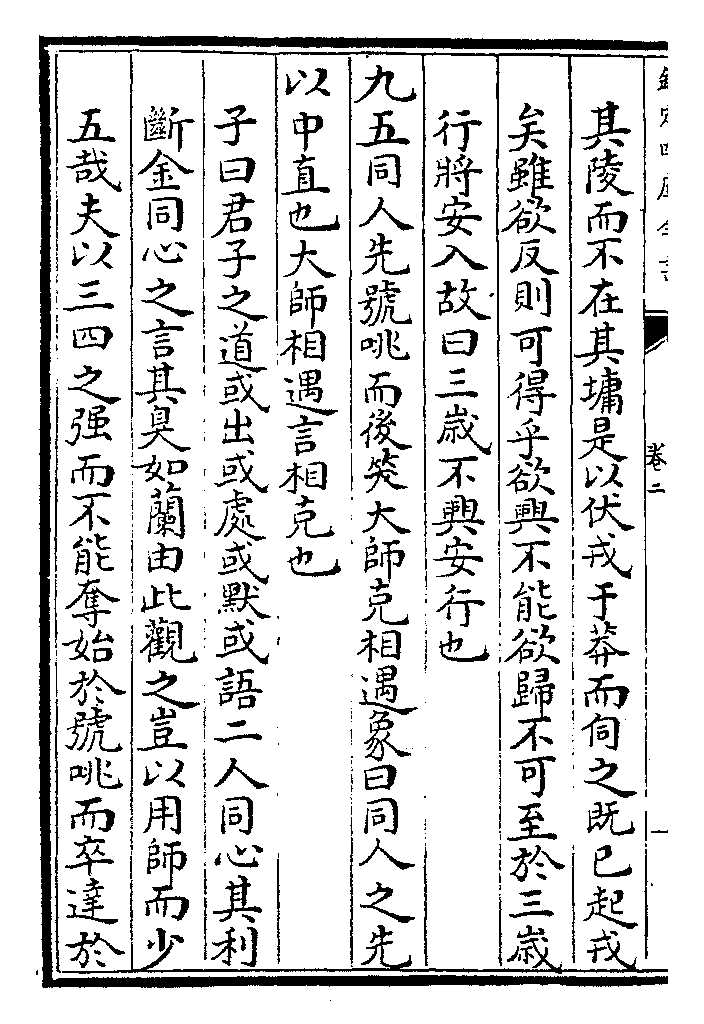 欽定四庫全書
卷二
其陵而不在其墉是以伏戎于莽而伺之既已起戎
矣雖欲反則可得乎欲興不能欲歸不可至於三歲
行將安入故曰三歲不興安行也
九五同人先號咷而後笑大師克相遇象曰同人之先
以中直也大師相遇言相克也
子曰君子之道或出或處或默或語二人同心其利
斷金同心之言其臭如蘭由此觀之豈以用師而少
五哉夫以三四之强而不能奪始於號咷而卒達於